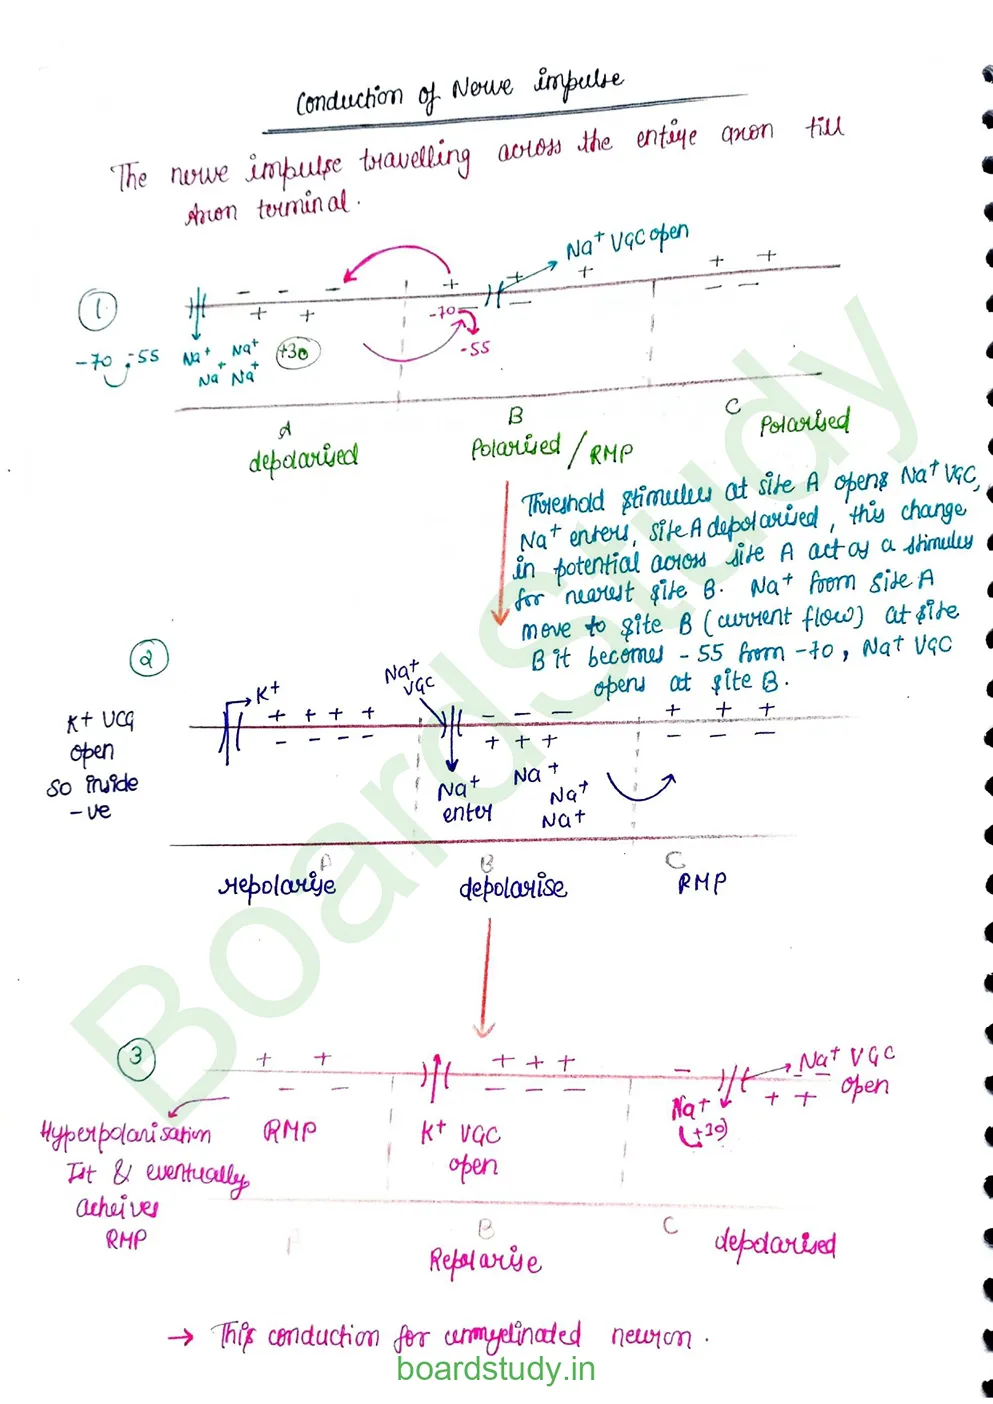 Conduction of Nerve impulse
The nerve impulse travelling across the entire axon till
Axon terminal.
Na+ VGC open
- - - + + + + +
1
+ + -70 - - - -
-55
-70 ; -55
Na+ Na+ +30
Na+ Na+
A B C
depolarised Polarised / RMP Polarised
Threshold stimulus at site A opens Na+ VGC,
Na+ enters, site A depolarised, this change
in potential across site A act as a stimulus
for nearest site B. Na+ from site A
move to site B (current flow) at site
B it becomes -55 from -70, Na+ VGC
opens at site B.
2
K+ Na+
VGC
+ + + + - - - + + +
- - - - + + + - - -
K+ VCG
open
so inside
-ve
Na+ Na+
enter Na+
Na+
A B C
repolarise depolarise RMP
3
+ + + + + - Na+ VGC
open
- - - - - + +
Na+
+30
Hyperpolarisation RMP K+ VGC
Ist & eventually open
acheives
RMP
A B C
Repolarise depolarised
→ This conduction for unmyelinated neuron.
boardstudy.in
BoardStudy